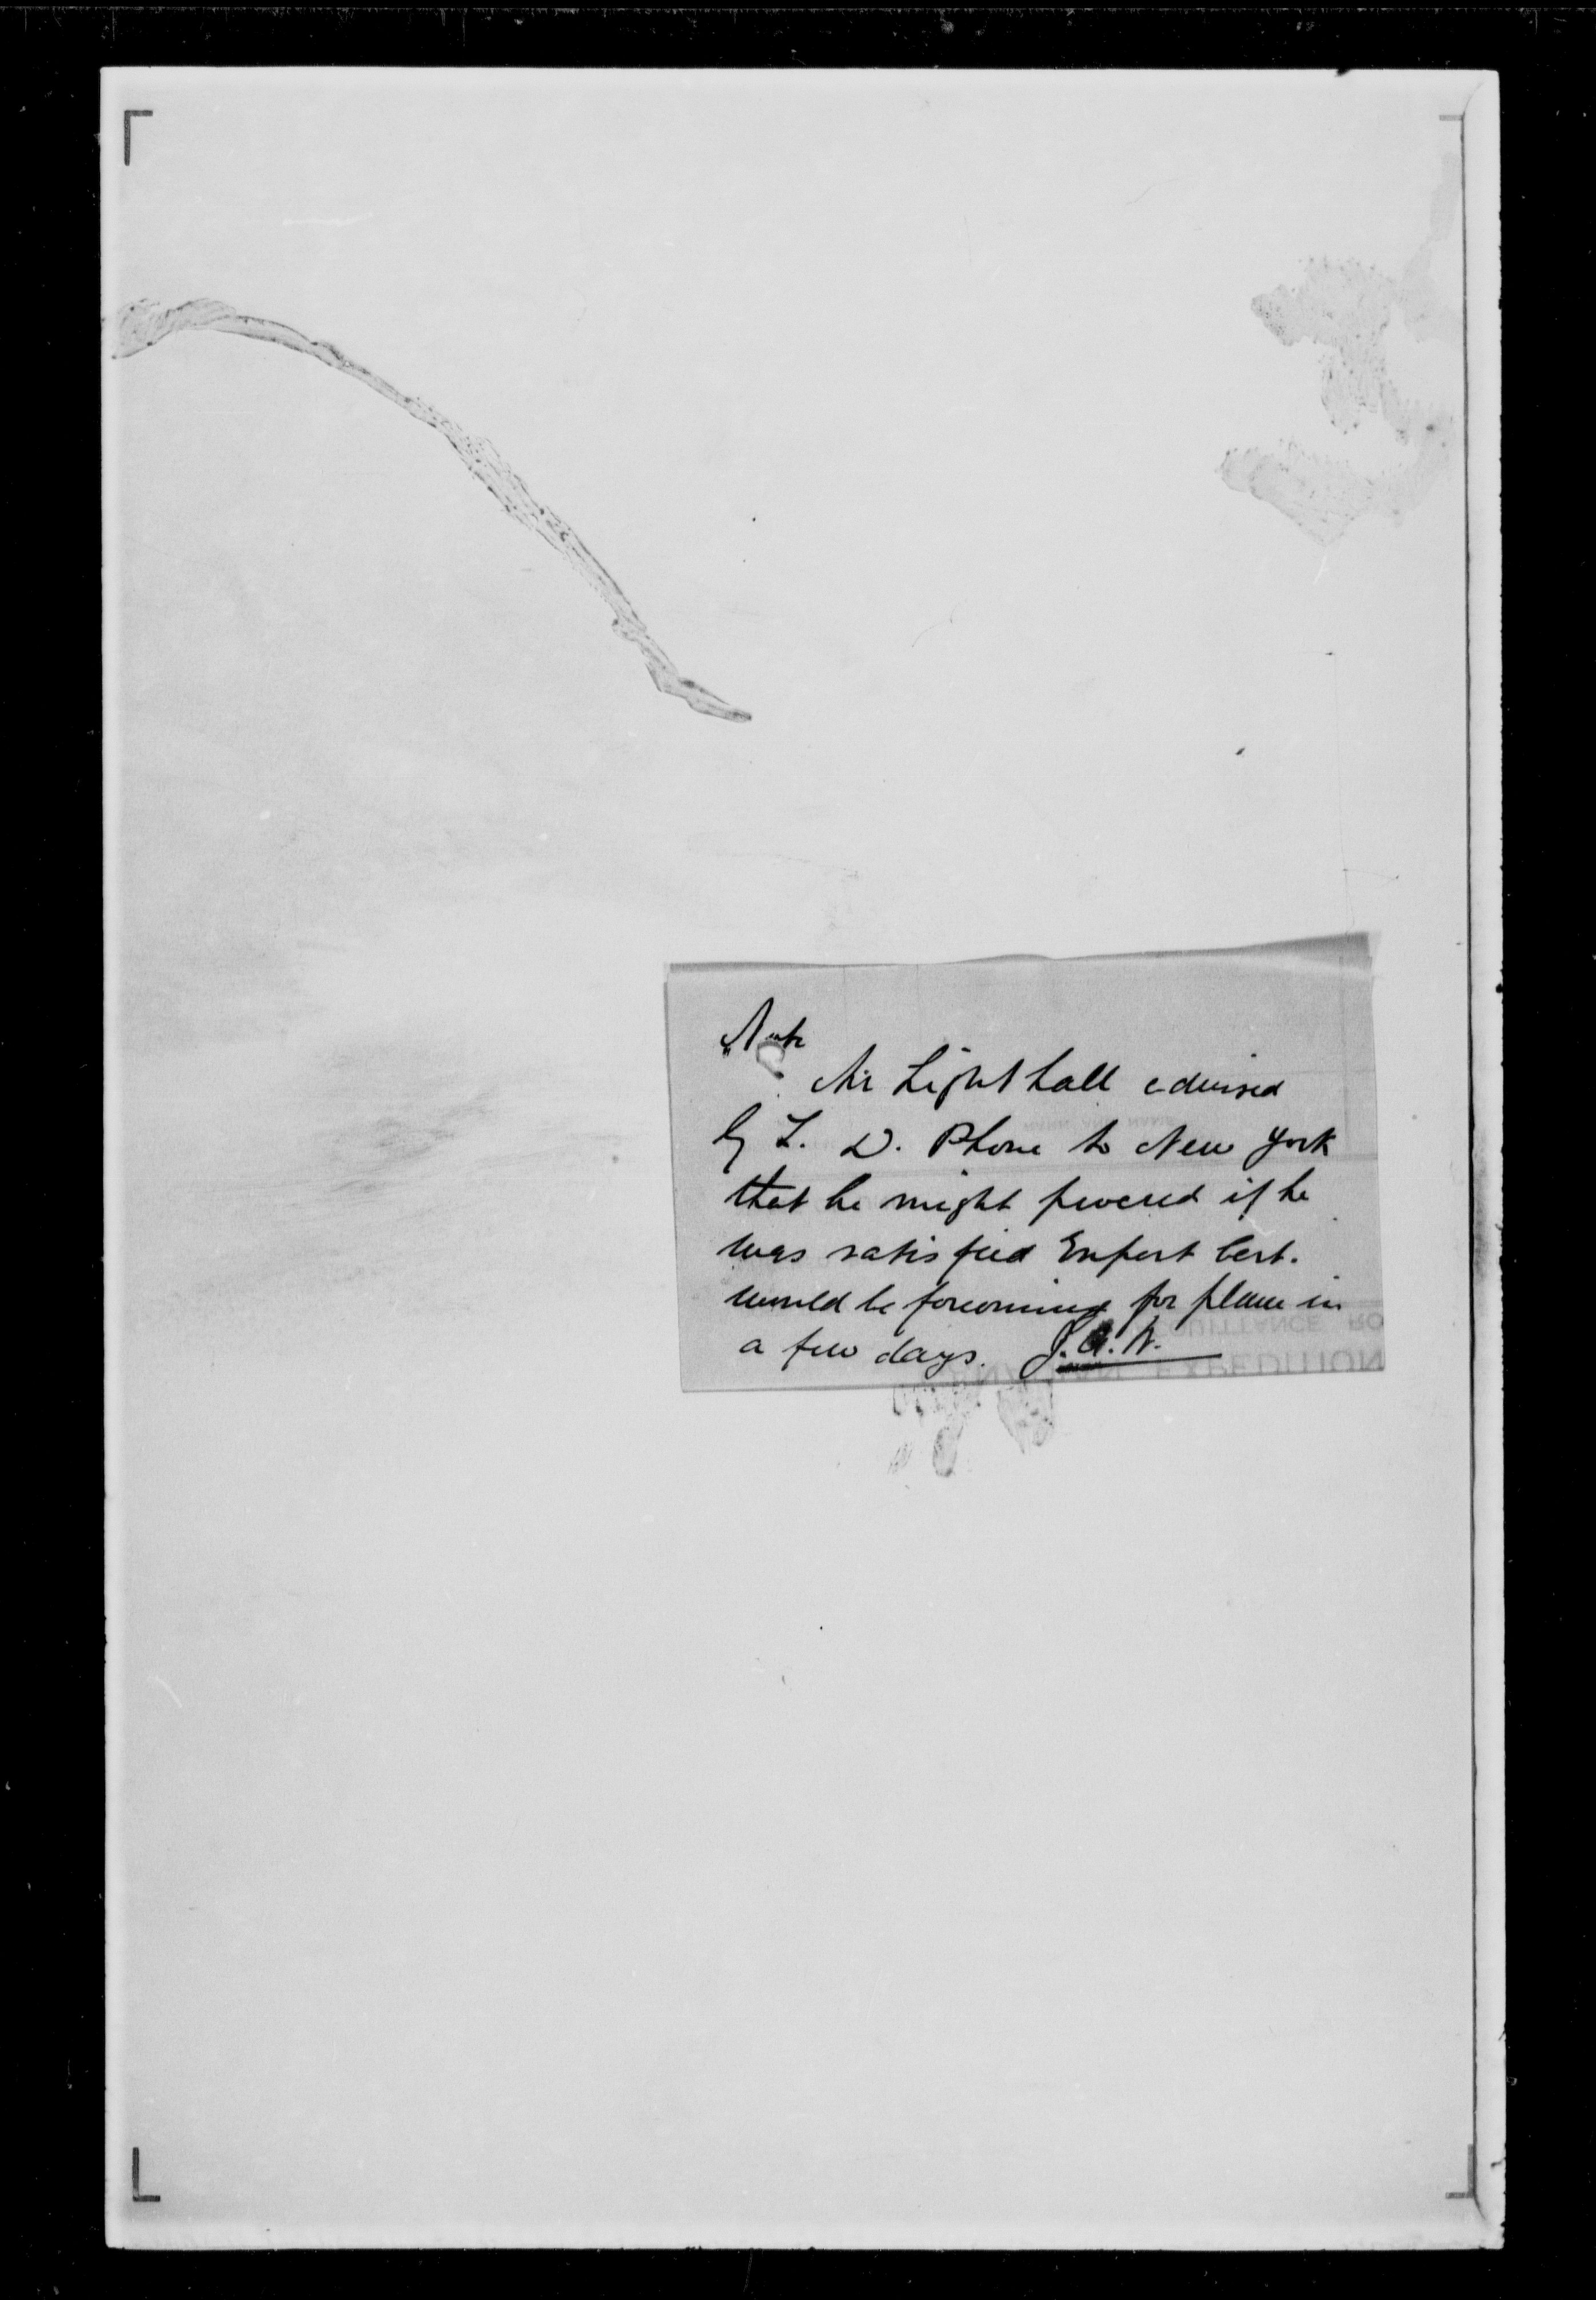 Note
Mr Lighthall advised
by L. D. Phone to New York
that he might proceed if he
was satisfied Export Cert.
would be forcoming for plane in
a few days. J.A.W.
QUITTANCE RO
EXPEDITION